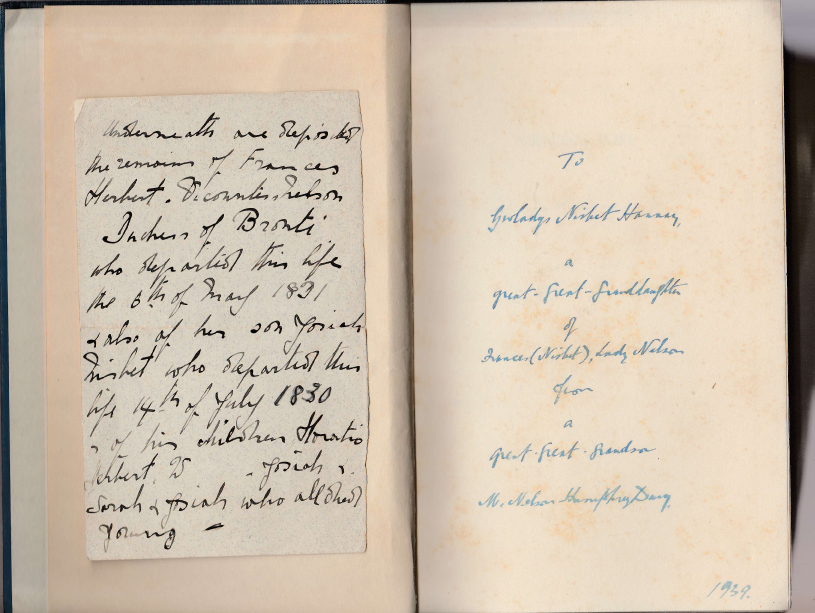 Underneath are deposited
the remains of Frances
Herbert. Vicountess Nelson
Duchess of Bronti
who departed this life
the 6th of May 1831
& also of her son Josiah
Nisbet who departed this
life 14th of July 1830
& of his children Horatio
Herbert, Josiah &
Sarah & Josiah who all died
young –
To
Gwladys Nisbet Hannay,
a
great-great-granddaughter
of
Frances (Nisbet), Lady Nelson
from
a
great-great-grandson
M. Nelson Humphry Davy,
1939.